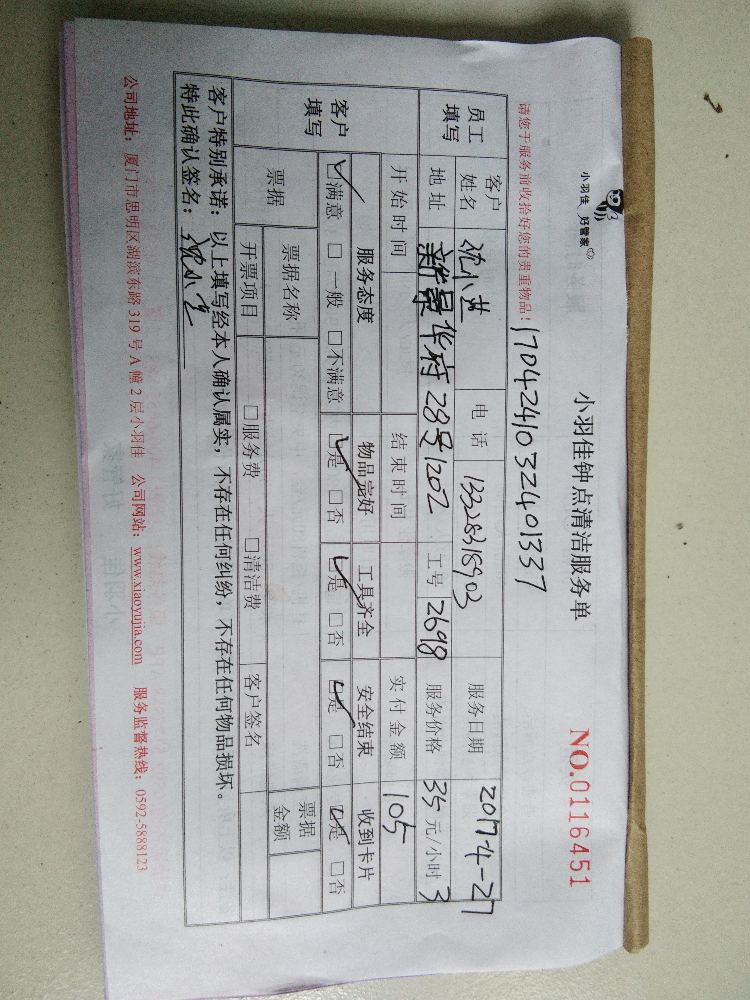 小羽佳 好管家
小羽佳钟点清洁服务单
NO.0116451
请您于服务前收拾好您的贵重物品！
1704241032401337
员工填写
客户姓名 沈小燕 电话 13328318903 服务日期 2017-4-27
地址 新景华府28号1202 工号 2698 服务价格 35元/小时 3
开始时间 结束时间 实付金额 105
客户填写
服务态度 物品完好 工具齐全 安全结束 收到卡片
☑满意 □一般 □不满意 ☑是 □否 ☑是 □否 ☑是 □否 ☑是 □否
票据 票据名称 票据金额
开票项目 □服务费 □清洁费 客户签名
客户特别承诺：以上填写经本人确认属实，不存在任何纠纷，不存在任何物品损坏。
特此确认签名：
公司地址：厦门市思明区湖滨东路319号A幢2层小羽佳 公司网站：www.xiaoyujia.com 服务监督热线：0592-5888123